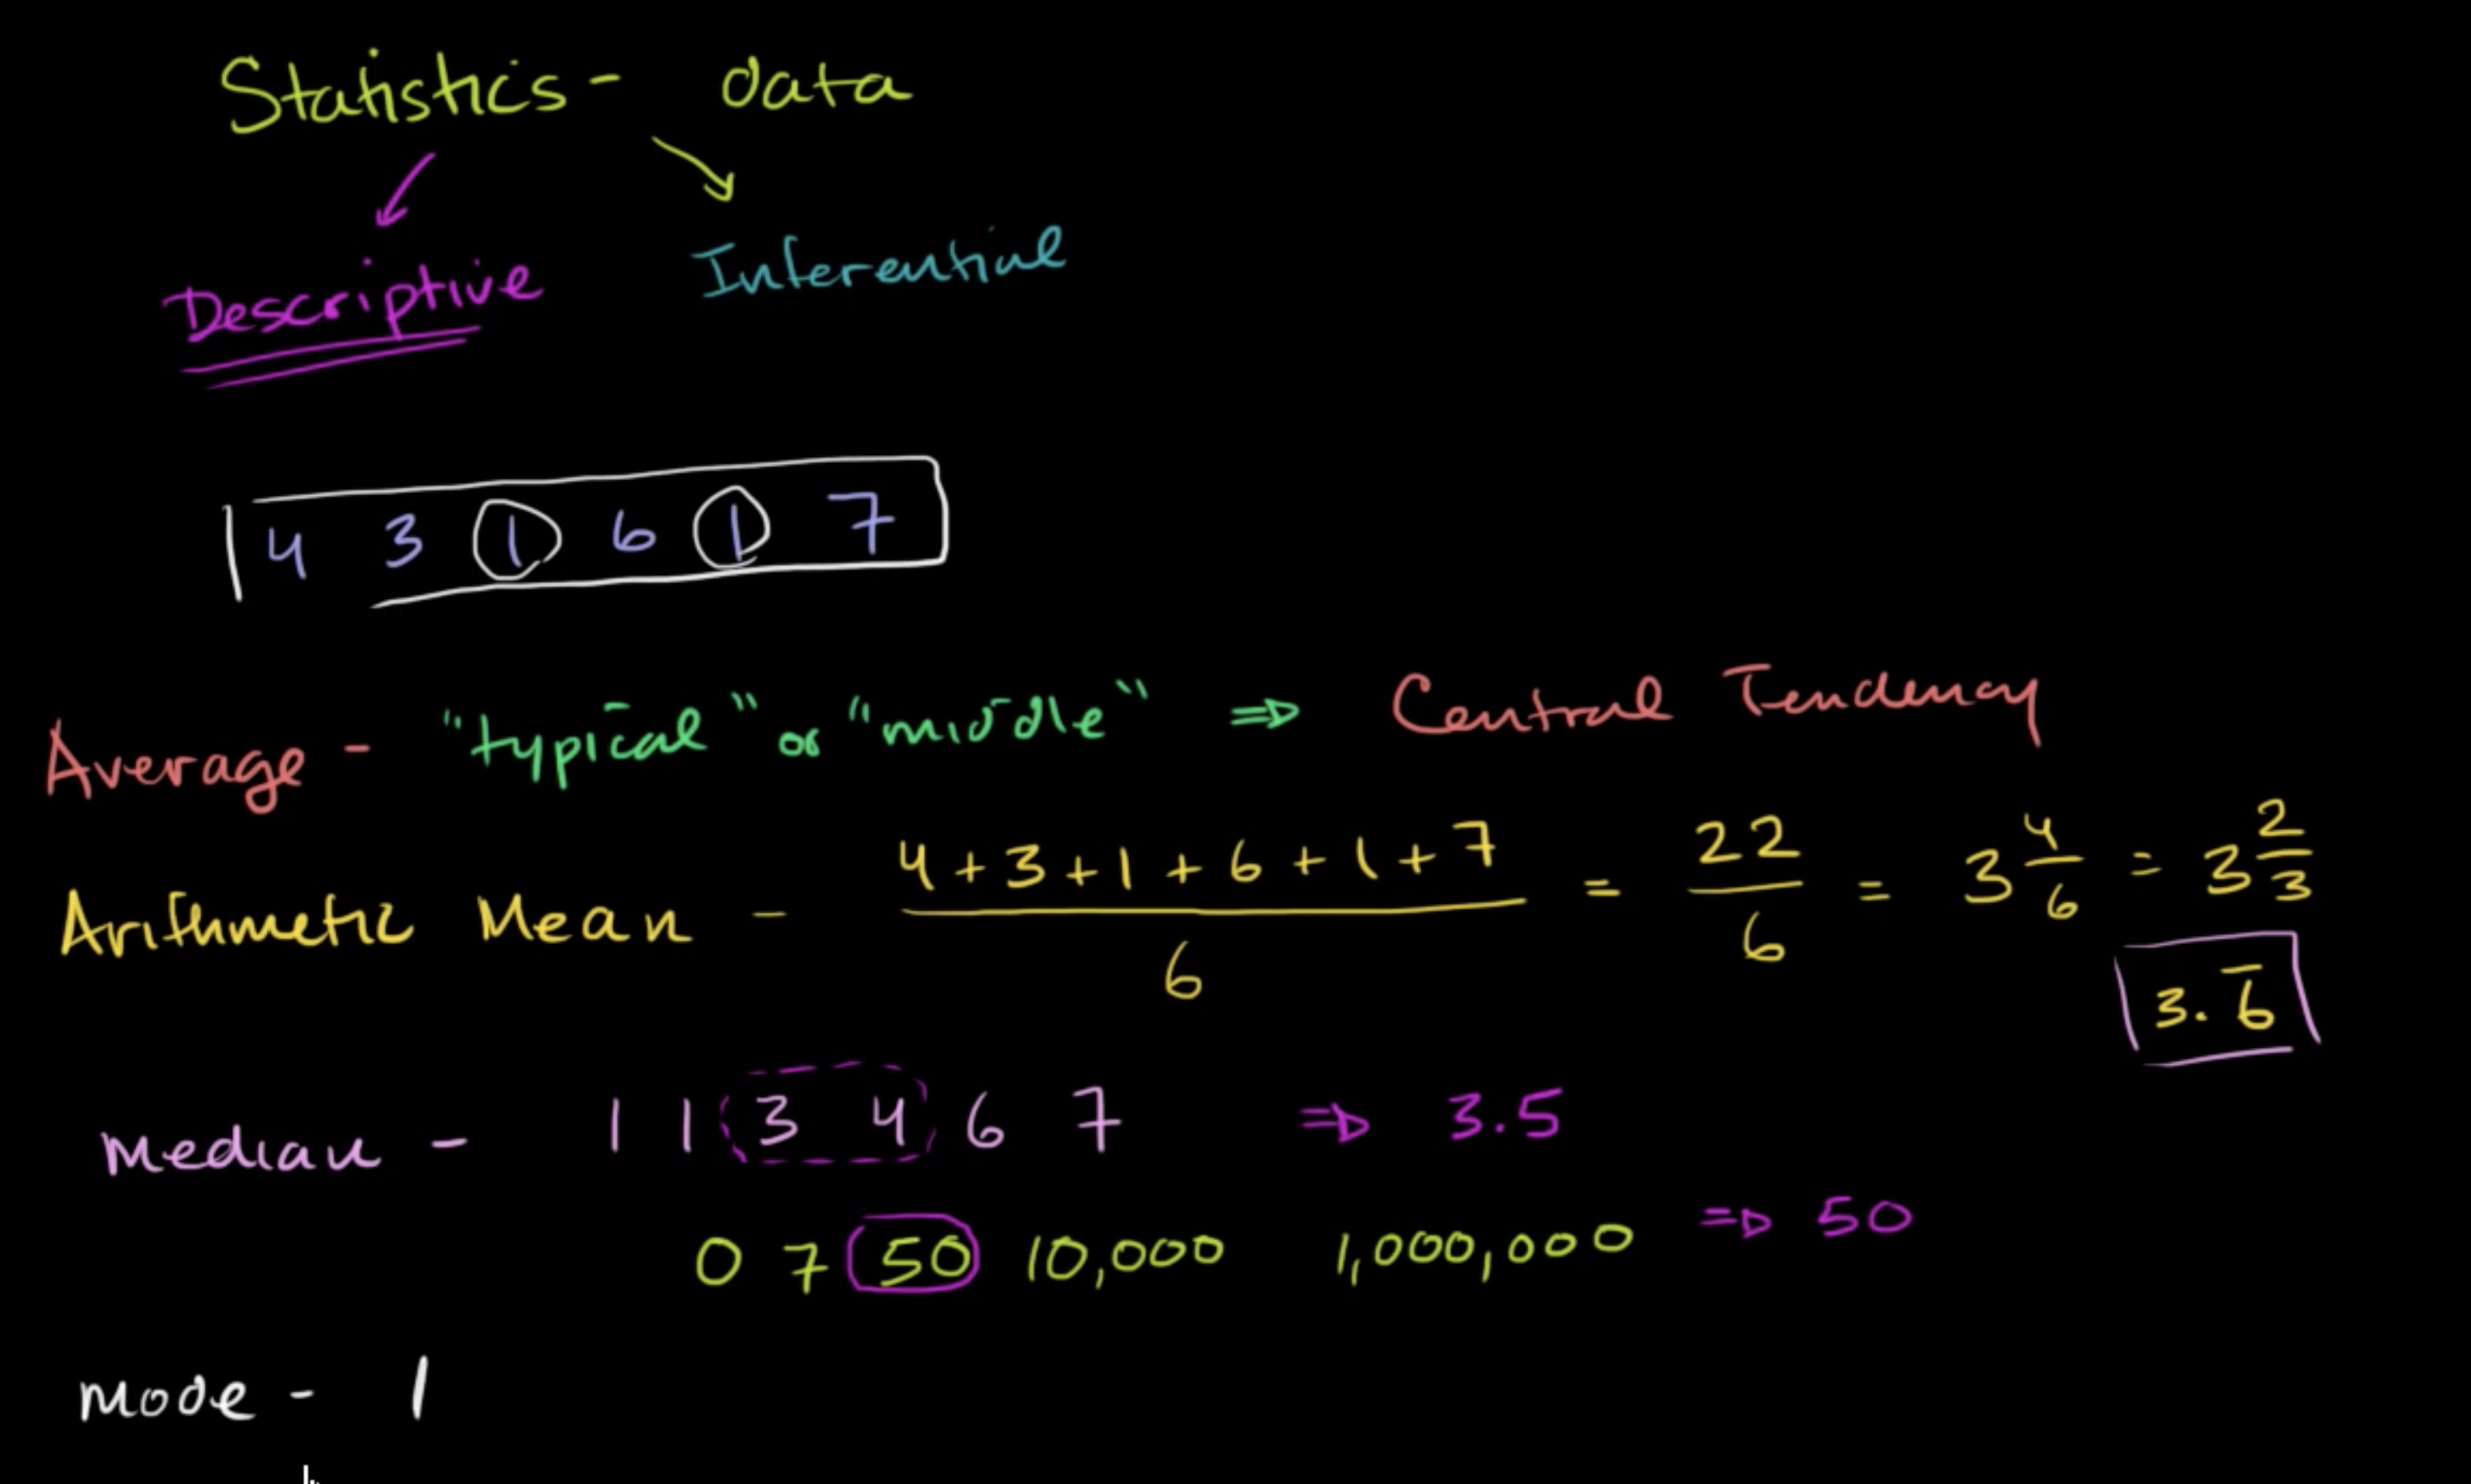 Statistics - data
Descriptive Inferential
4 3 1 6 1 7
Average - "typical" or "middle" ⇒ Central Tendency
Arithmetic Mean - (4+3+1+6+1+7)/6 = 22/6 = 3 4/6 = 3 2/3
3.6̅
Median - 1 1 3 4 6 7 ⇒ 3.5
0 7 50 10,000 1,000,000 ⇒ 50
Mode - 1